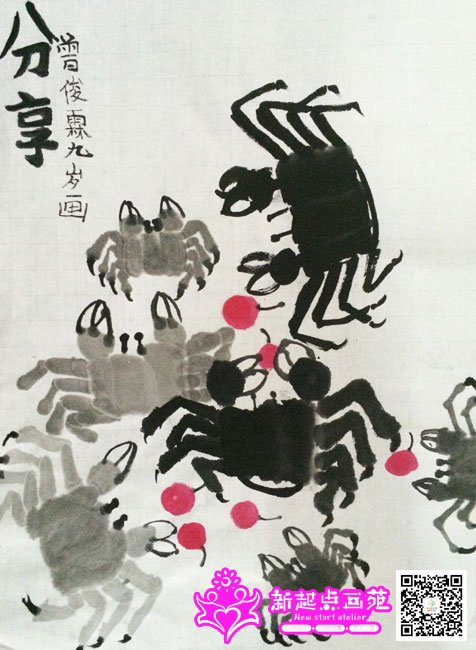 分享
曾俊霖九岁画
新起点画苑
New start atelier